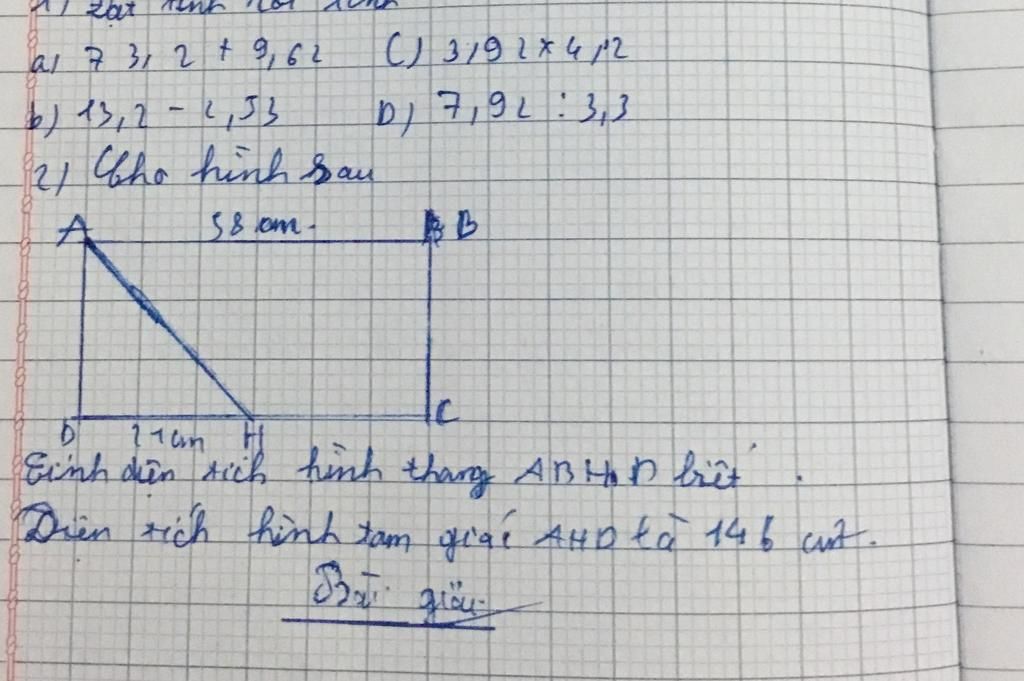 a) 73,2 + 9,62 C) 3,92 x 4,2
b) 13,2 - 2,53 D) 7,92 : 3,3
2) Cho hình sau
A 58 cm. B
D 21cm H C
Tính diện tích hình thang ABHD biết
Diện tích hình tam giác AHD là 146 cm².
Bài giải